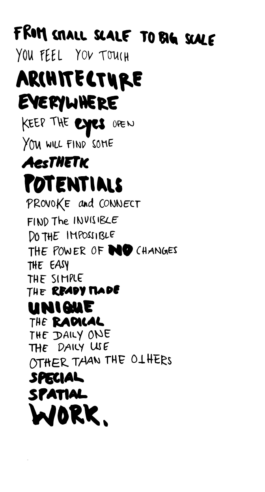 FROM SMALL SCALE TO BIG SCALE
YOU FEEL YOU TOUCH
ARCHITECTURE
EVERYWHERE
KEEP THE eyes OPEN
YOU WILL FIND SOME
AesTHETIC
POTENTIALS
PROVOKE and CONNECT
FIND THe INVISIBLE
DO THE IMPOSSIBLE
THE POWER OF NO CHANGES
THE EASY
THE SIMPLE
THE READY MADE
UNIQUE
THE RADICAL
THE DAILY ONE
THE DAILY USE
OTHER THAN THE OTHERS
SPECIAL
SPATIAL
WORK.